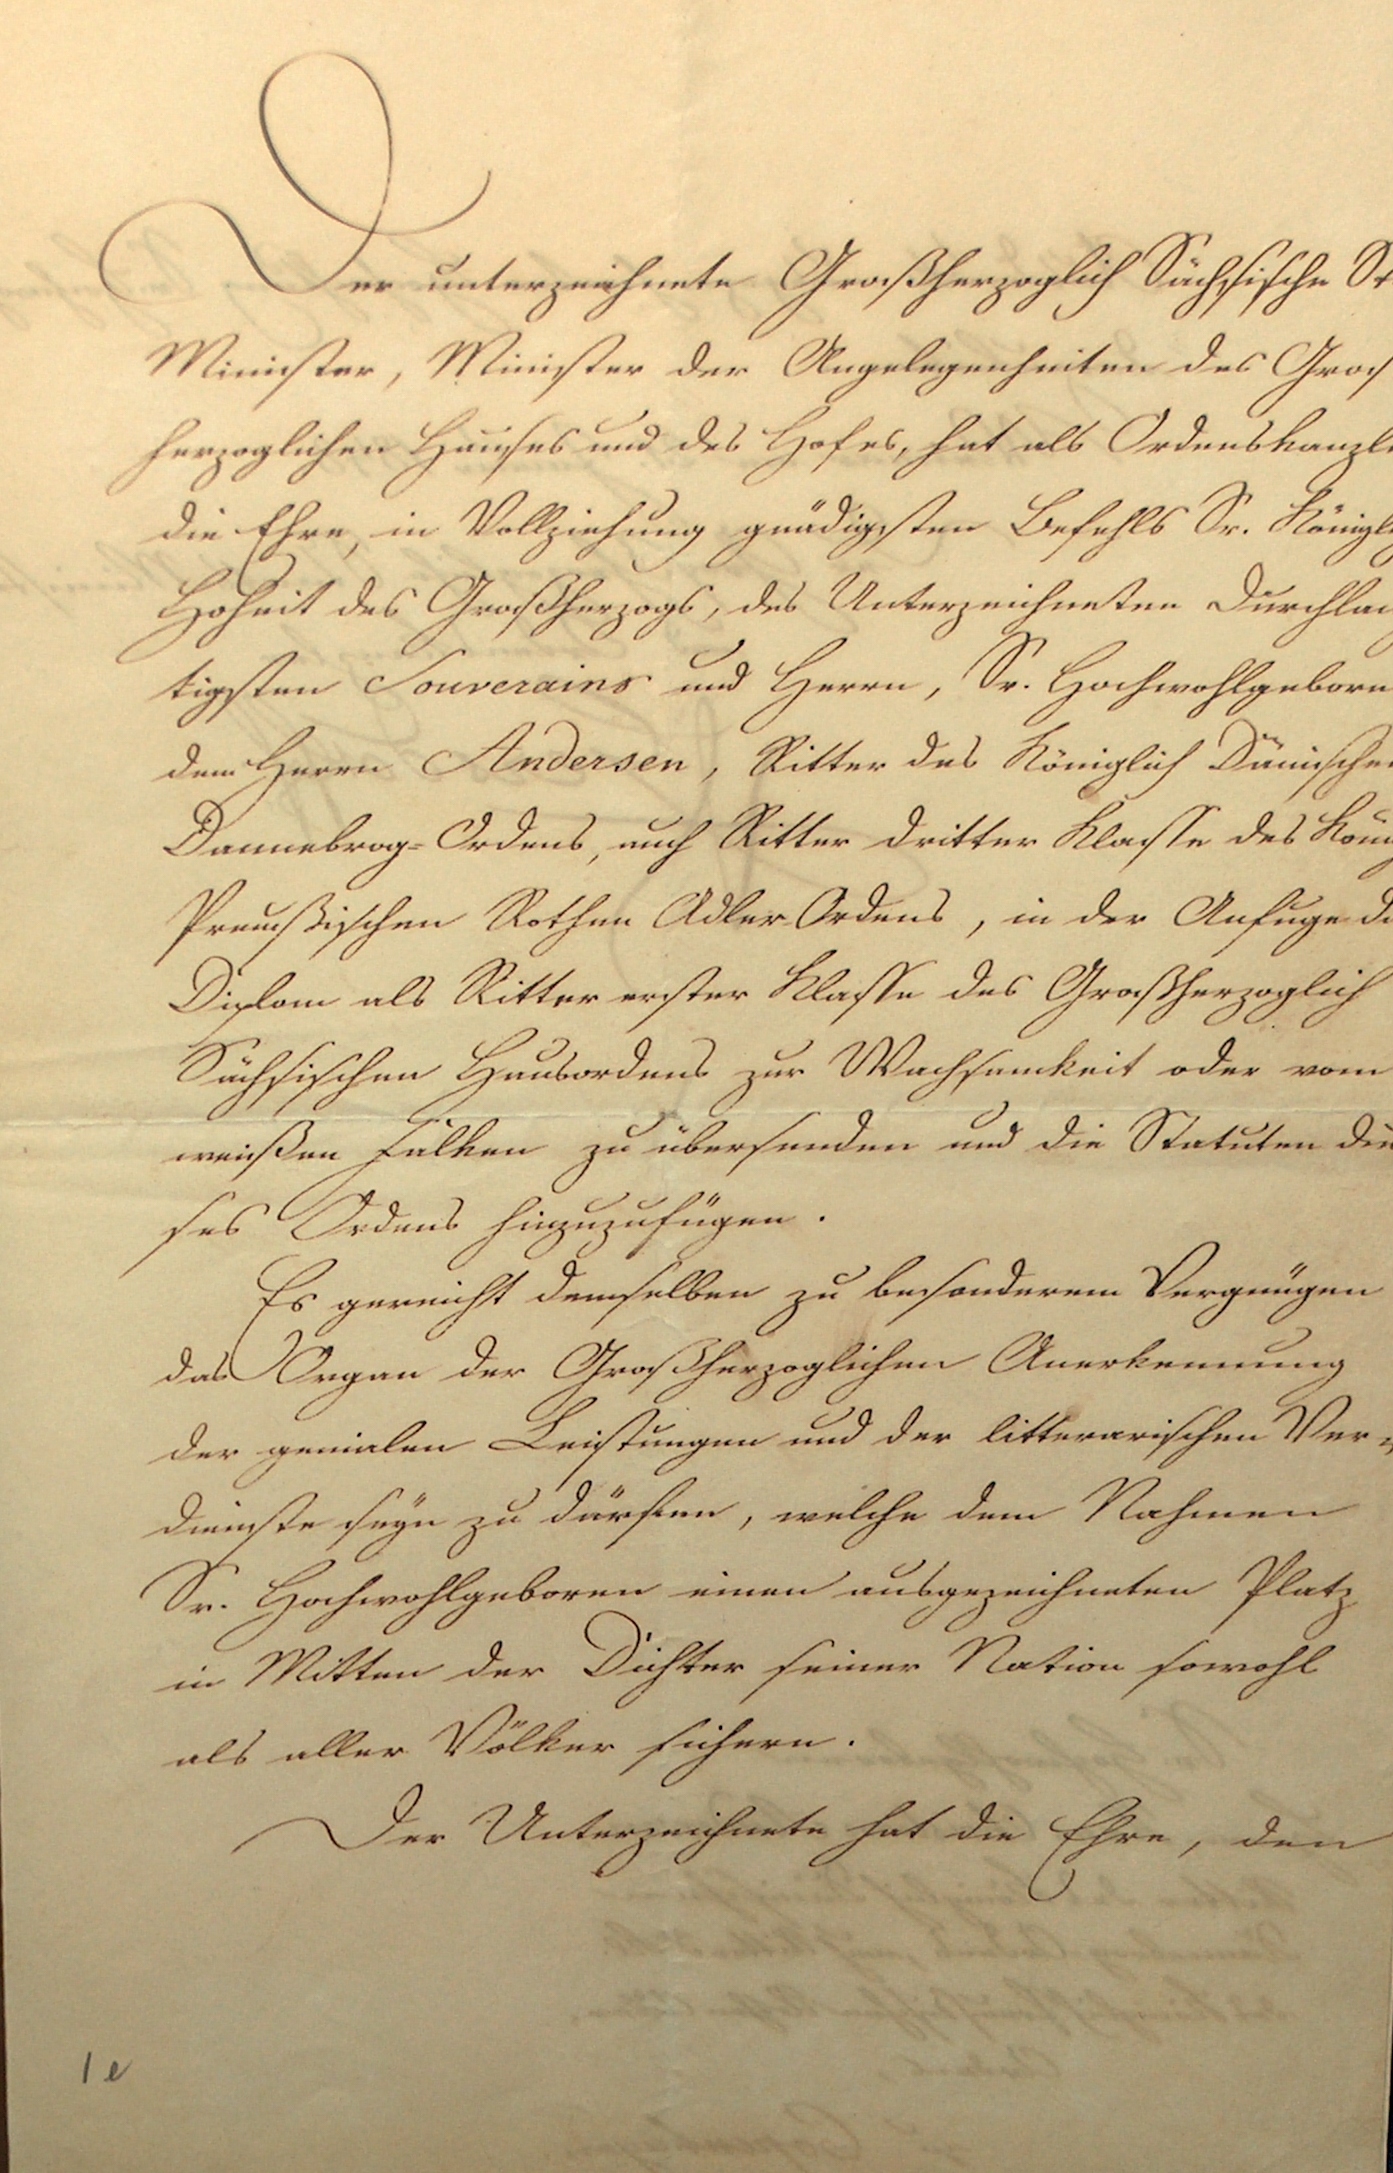 Der unterzeichnete Großherzoglich Sächsische St
Minister, Minister der Angelegenheiten des Gros
herzoglichen Hauses und des Hofes, hat als Ordenskanzle
die Ehre, in Vollziehung gnädigsten Befehls Sr. Königl
Hoheit des Großherzogs, des Unterzeichneten Durchlau
tigsten Souverains und Herrn, Sr. Hochwohlgeborn
dem Herrn Andersen, Ritter des Königlich Dänischen
Dannebrog-Ordens, auch Ritter dritter Klasse des Köni
Preußischen Rothen Adler-Ordens, in der Anfuge da
Diplom als Ritter erster Klasse des Großherzoglich
Sächsischen Hausordens zur Wachsamkeit oder vom
weißen Falken zu übersenden und die Statuten die
ses Ordens hinzuzufügen.
Es gereicht demselben zu besonderem Vergnügen
das Organ der Großherzoglichen Anerkennung
der genialen Leistungen und der litterarischen Ver-
dienste seyn zu dürfen, welche dem Nahmen
Sr. Hochwohlgeboren einen ausgezeichneten Platz
in Mitten der Dichter seiner Nation sowohl
als aller Völker sichern.
Der Unterzeichnete hat die Ehre, den
1e